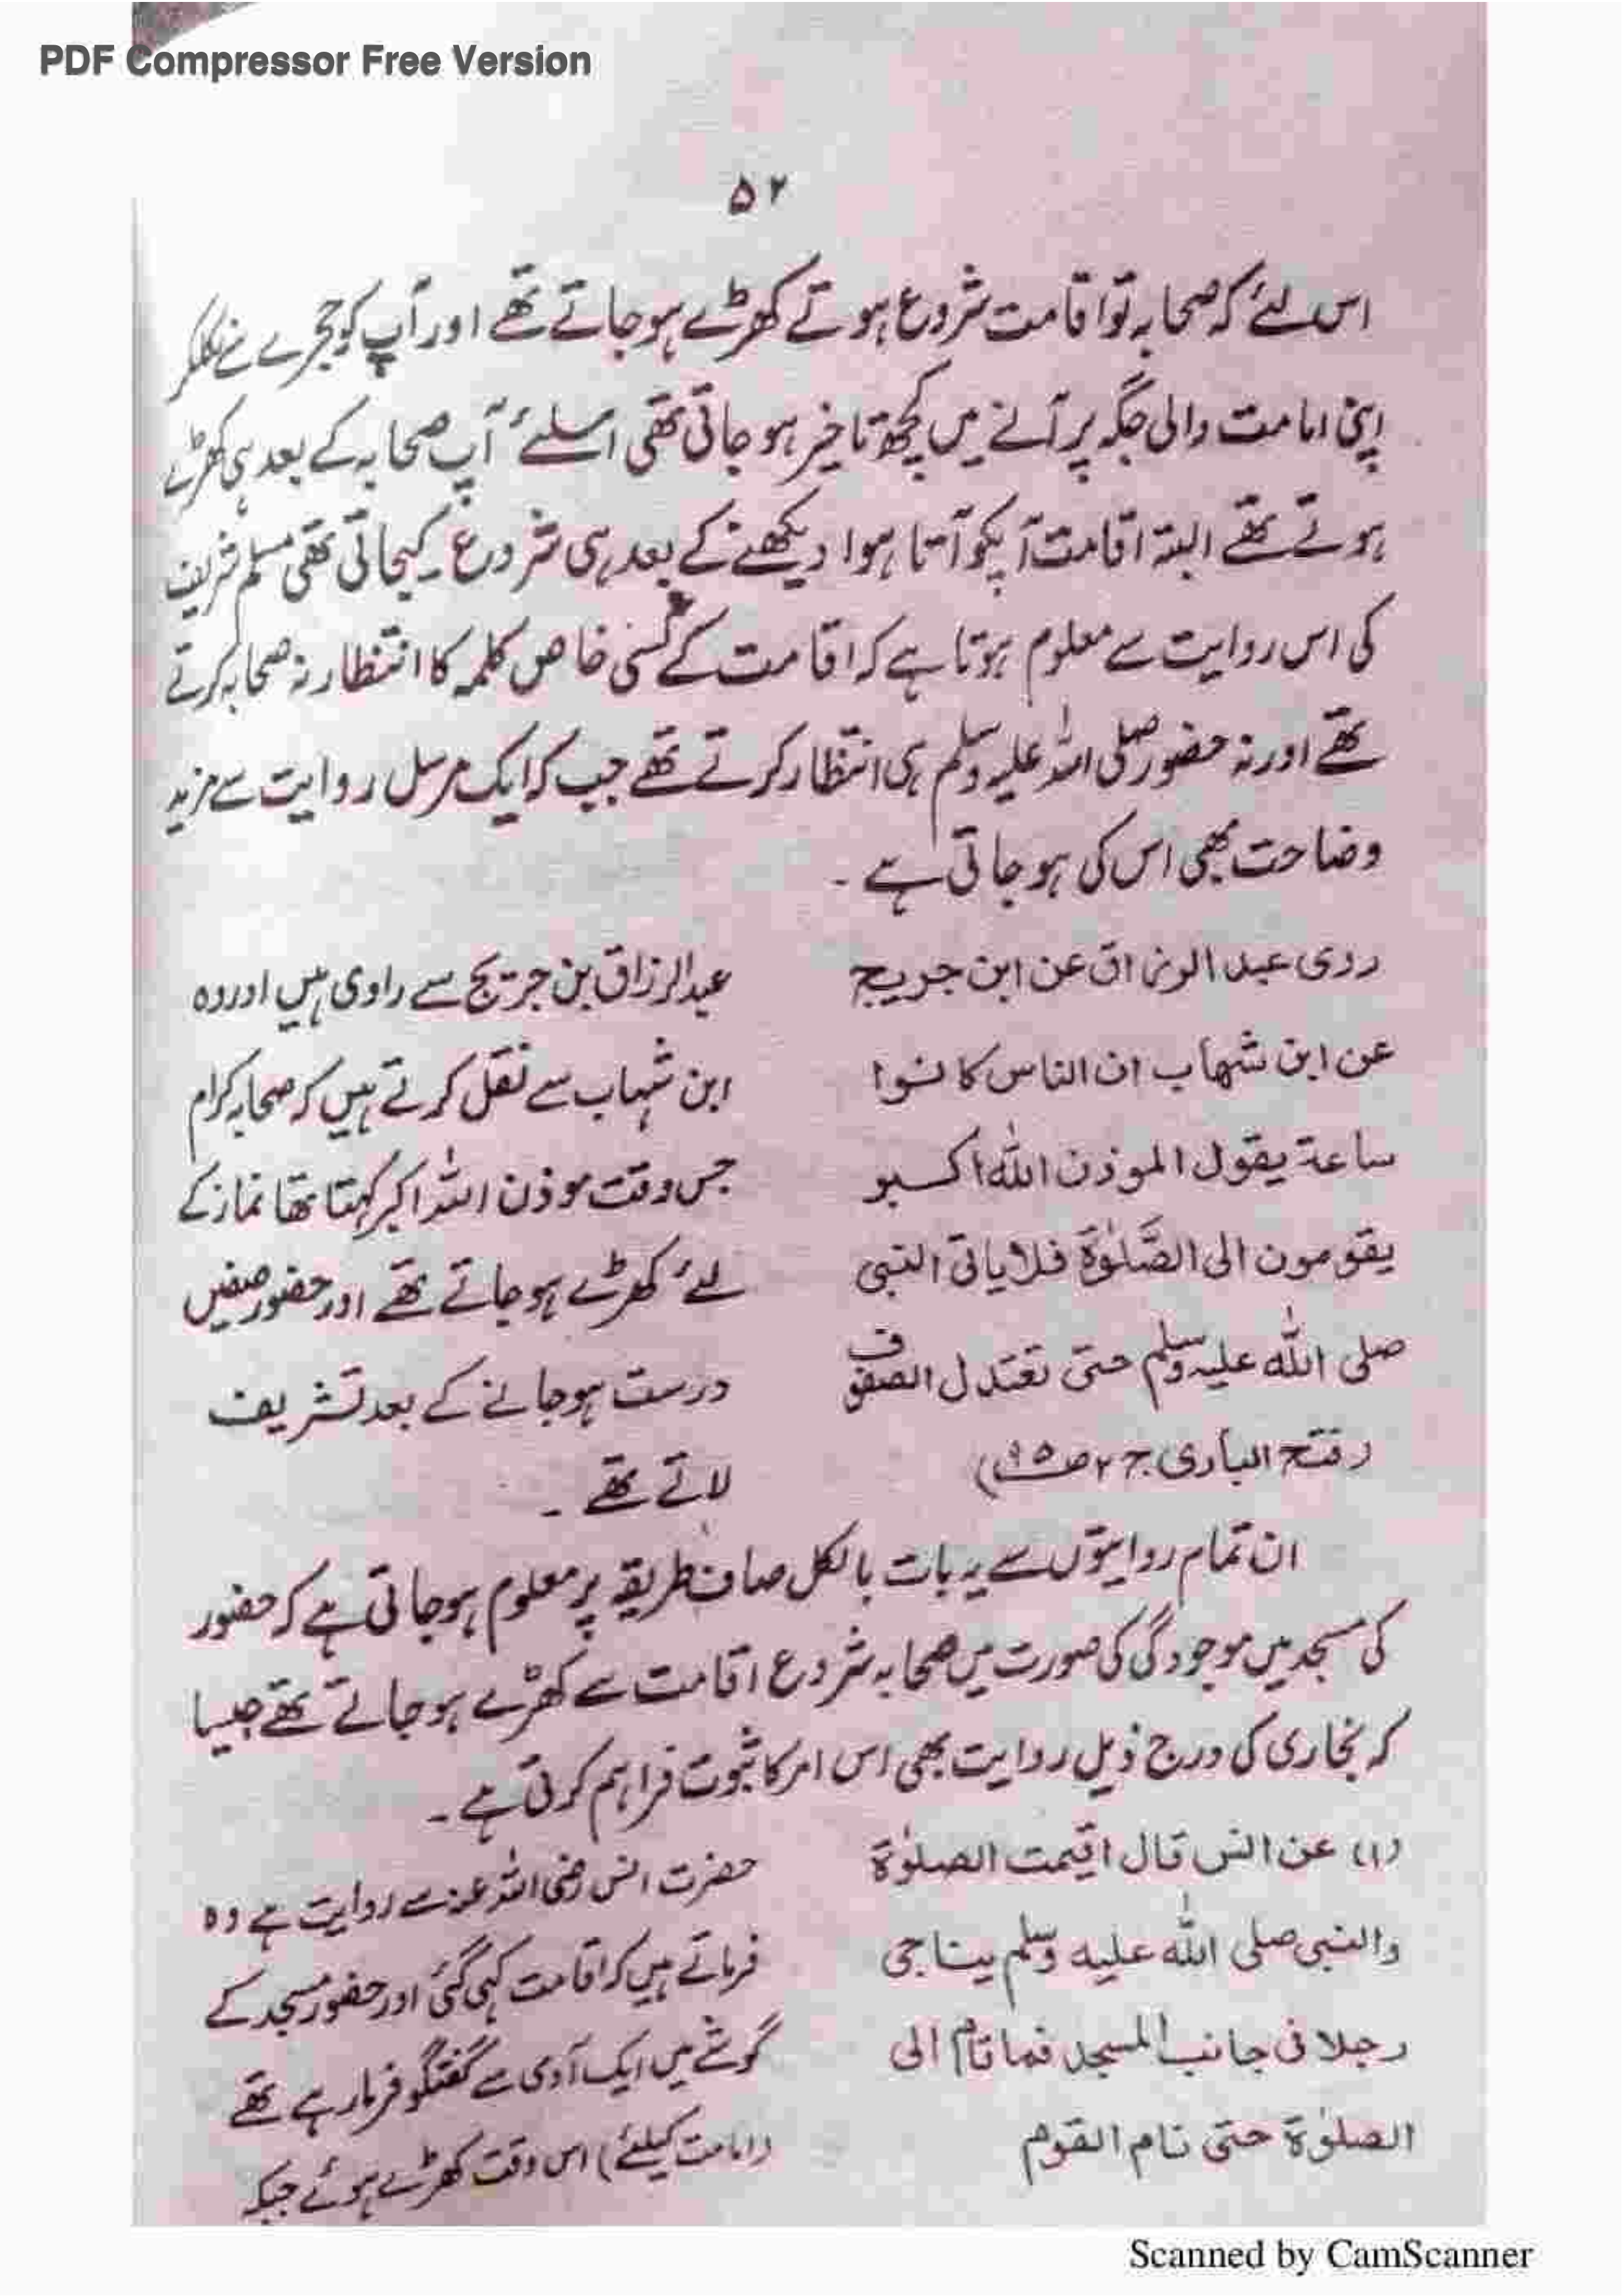 PDF Compressor Free Version
۵۲
اس لئے کہ صحابہ تو اقامت شروع ہوتے کھڑے ہوجاتے تھے اور آپ کو حجرے سے نکلکر
اپنی امامت والی جگہ پر آنے میں کچھ تاخیر ہو جاتی تھی اسلئے آپ صحابہ کے بعد ہی کھڑے
ہوتے تھے البتہ اقامت آپکو آتا ہوا دیکھنے کے بعد ہی شروع کیجاتی تھی مسلم شریف
کی اس روایت سے معلوم ہوتا ہے کہ اقامت کے کسی خاص کلمہ کا انتظار نہ صحابہ کرتے
تھے اور نہ حضور صلی اللہ علیہ وسلم ہی انتظار کرتے تھے جب کہ ایک مرسل روایت سے مزید
وضاحت بھی اس کی ہو جاتی ہے ۔
روی عبد الرزاق عن ابن جریج
عن ابن شهاب ان الناس کانوا
ساعة يقول الموذن الله اکبر
يقومون الى الصَّلوٰة فلا ياتى النبى
صلى الله عليه وسلم حتى تعتدل الصفوف
(فتح الباری ج ۲ ص ۹۵)
عبدالرزاق بن جریج سے راوی ہیں اور وہ
ابن شہاب سے نقل کرتے ہیں کہ صحابہ کرام
جس وقت موذن اللہ اکبر کہتا تھا نماز کے
لئے کھڑے ہوجاتے تھے اور حضور صفیں
درست ہوجانے کے بعد تشریف
لاتے تھے ۔
ان تمام روایتوں سے یہ بات بالکل صاف طریقے پر معلوم ہوجاتی ہے کہ حضور
کی مسجد میں موجودگی کی صورت میں صحابہ شروع اقامت سے کھڑے ہوجاتے تھے جیسا
کہ بخاری کی درج ذیل روایت بھی اس امر کا ثبوت فراہم کرتی ہے ۔
(۱) عن انس قال اقيمت الصلوٰة
والنبى صلى الله عليه وسلم يناجى
رجلا فى جانب المسجد فما قام الى
الصلوٰة حتى نام القوم
حضرت انس رضی اللہ عنہ سے روایت ہے وہ
فرماتے ہیں کہ اقامت کہی گئی اور حضور مسجد کے
گوشے میں ایک آدمی سے گفتگو فرما رہے تھے
(امامت کیلئے) اس وقت کھڑے ہوئے جبکہ
Scanned by CamScanner